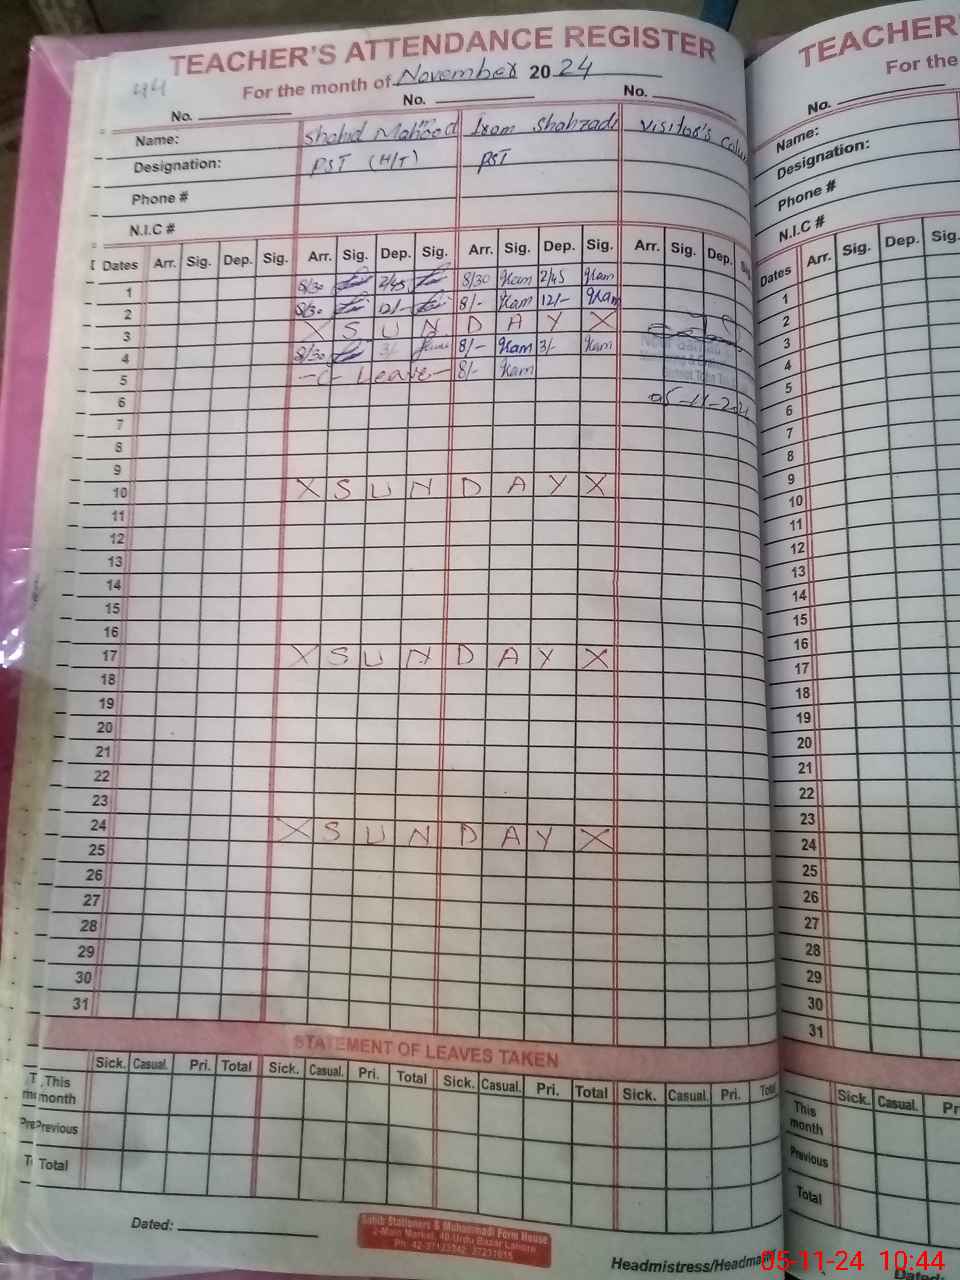 TEACHER'S ATTENDANCE REGISTER
44
For the month of November 2024
No. No. No.
Name: Shahid Mahmood Iram Shahzadi Visitor's Colum
Designation: PST (H/T) PST
Phone #
N.I.C #
Dates Arr. Sig. Dep. Sig. Arr. Sig. Dep. Sig. Arr. Sig. Dep. Sig. Arr. Sig. Dep.
1 8/30 2/45 8/30 2/45
2 8/30 12/- 8/- 12/-
3 X S U N D A Y X
4 8/30 3/- 8/- 3/-
5 -C- Leave- 8/-
6 05-11-24
7
8
9
10 X S U N D A Y X
11
12
13
14
15
16
17 X S U N D A Y X
18
19
20
21
22
23
24 X S U N D A Y X
25
26
27
28
29
30
31
STATEMENT OF LEAVES TAKEN
Sick. Casual. Pri. Total Sick. Casual. Pri. Total Sick. Casual. Pri. Total Sick. Casual. Pri. Total
This month
Previous
Total
Dated:
Sahib Stationers & Muhammadi Form House
2-Main Market, 40-Urdu Bazar Lahore
Headmistress/Headma
TEACHER'
For the
No.
Name:
Designation:
Phone #
N.I.C #
Dates Arr. Sig. Dep. Sig.
1
2
3
4
5
6
7
8
9
10
11
12
13
14
15
16
17
18
19
20
21
22
23
24
25
26
27
28
29
30
31
Sick. Casual. Pr
This month
Previous
Total
Dated:
05-11-24 10:44